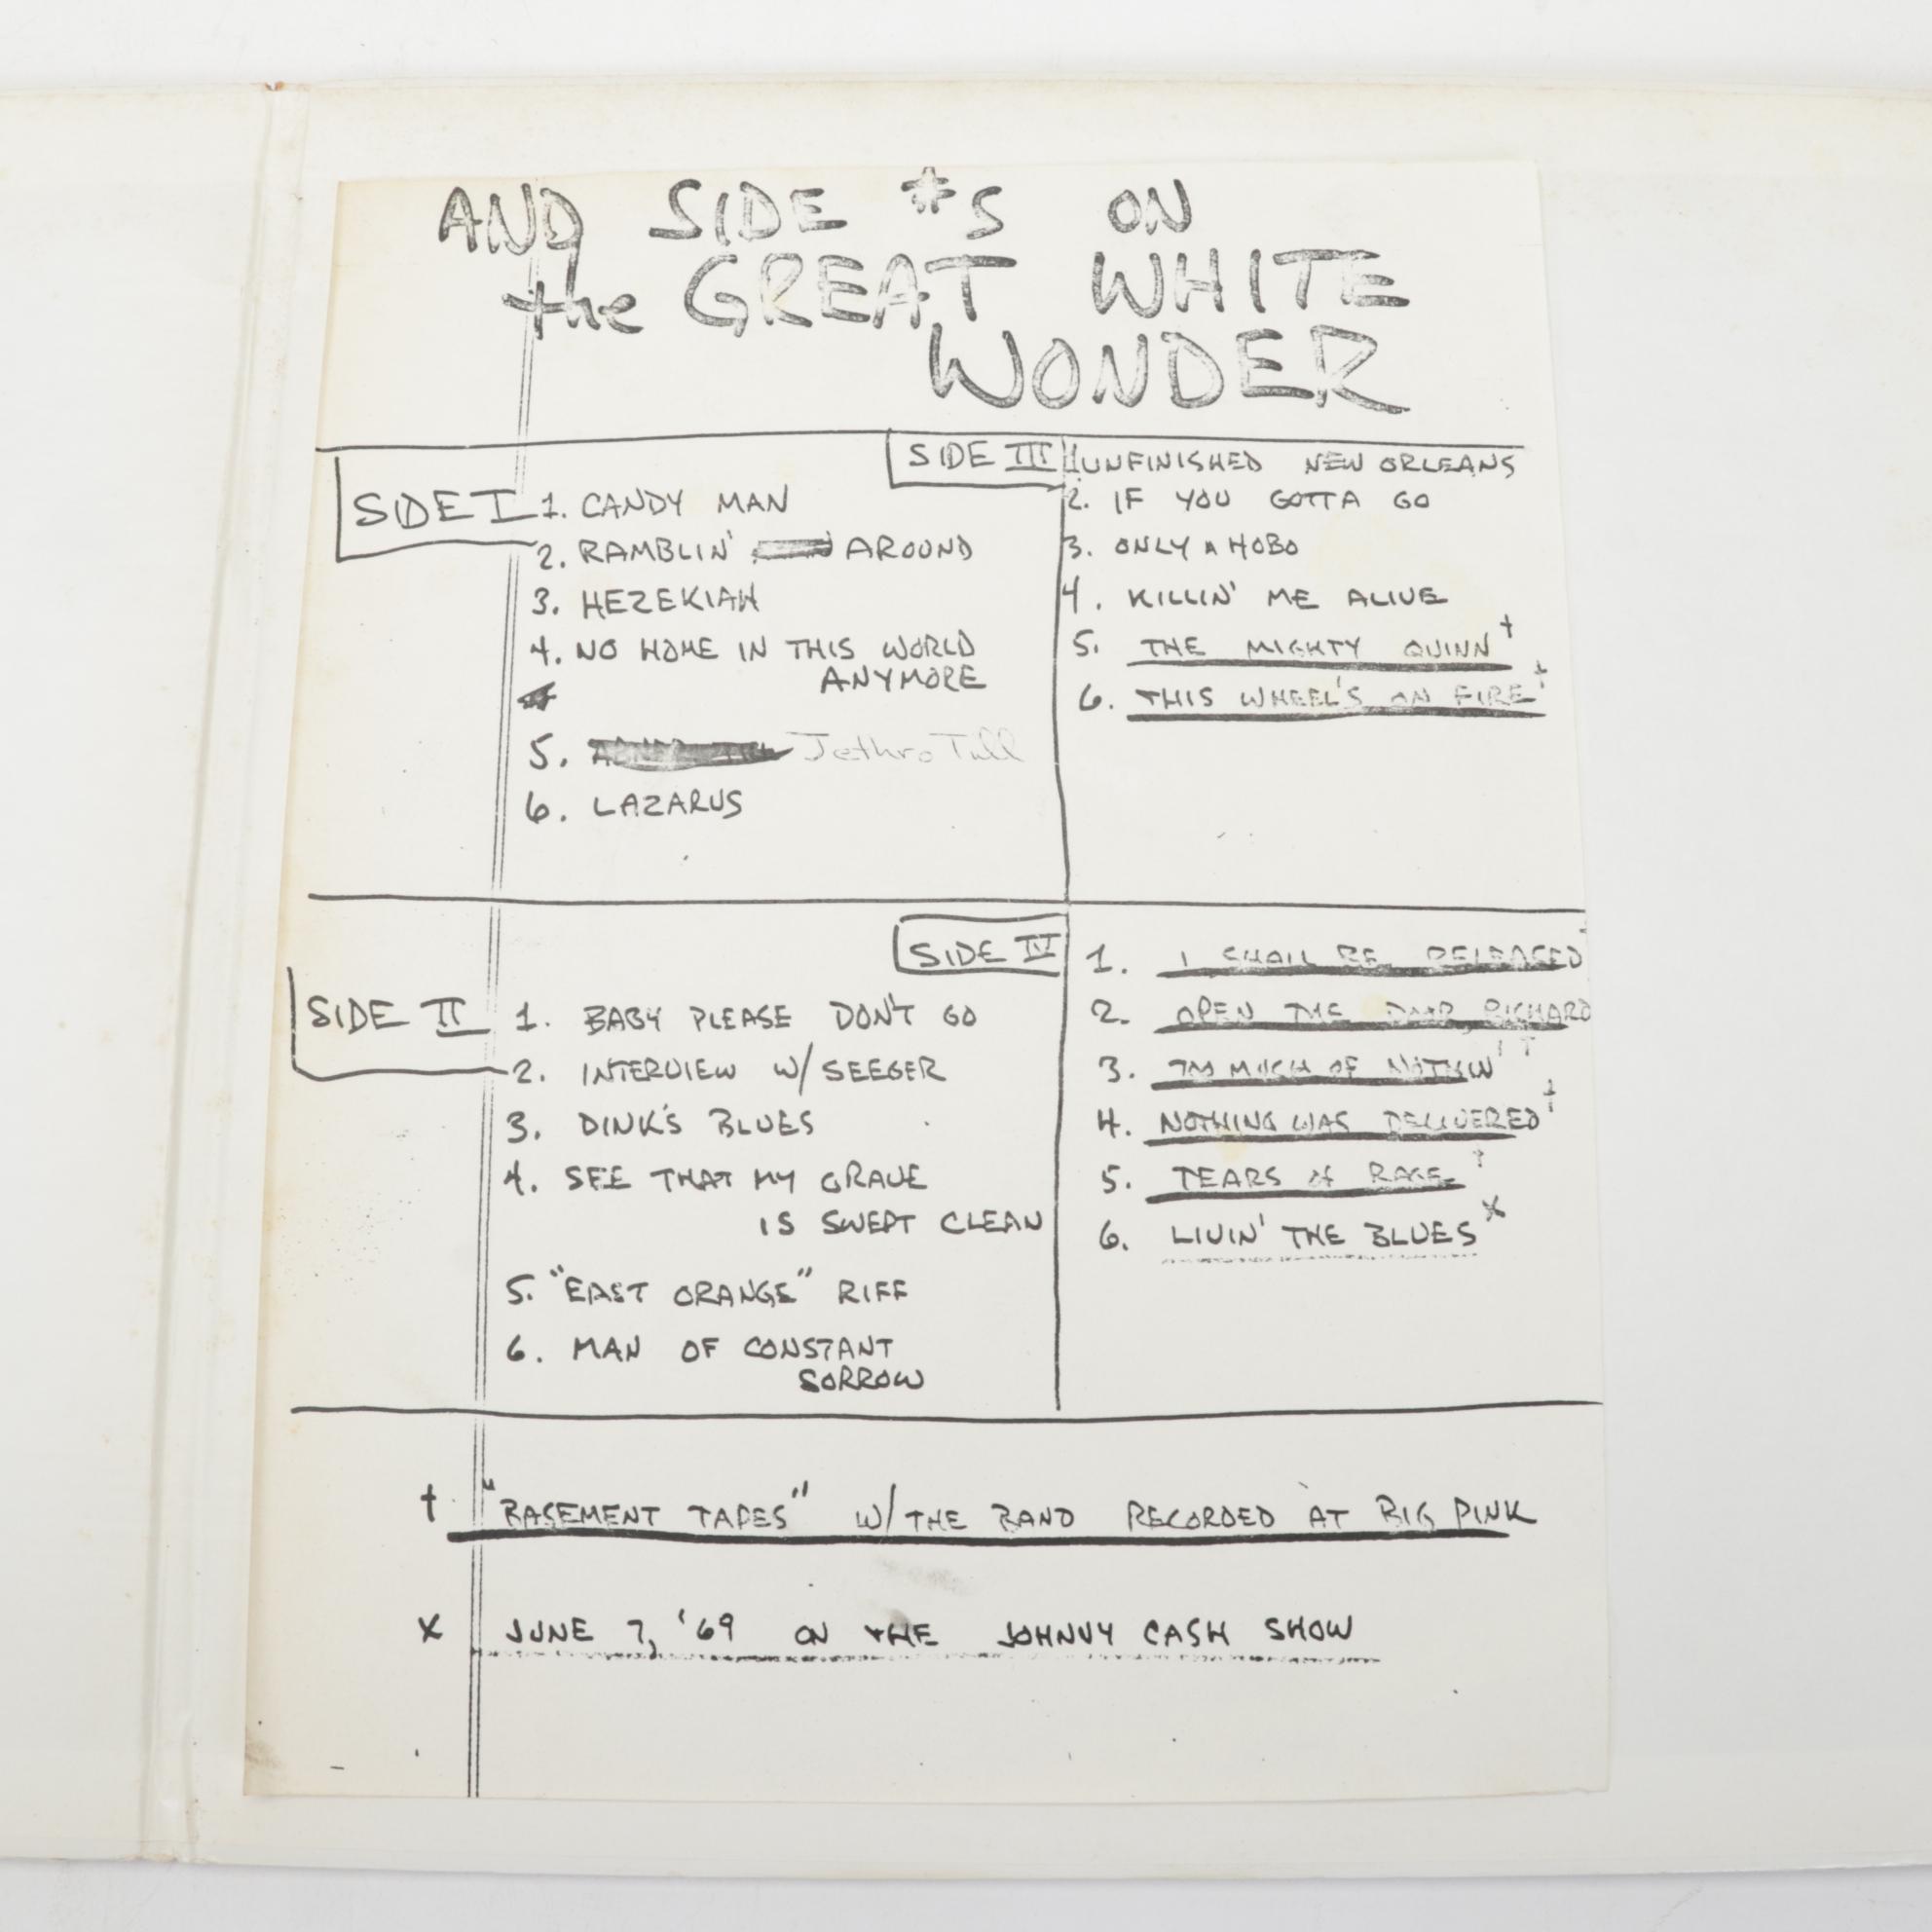 AND SIDE #S ON
the GREAT WHITE
WONDER
SIDE I
1. CANDY MAN
2. RAMBLIN' AROUND
3. HEZEKIAH
4. NO HOME IN THIS WORLD
ANYMORE
5. Jethro Tull
6. LAZARUS
SIDE III
1. UNFINISHED NEW ORLEANS
2. IF YOU GOTTA GO
3. ONLY A HOBO
4. KILLIN' ME ALIVE
5. THE MIGHTY QUINN †
6. THIS WHEEL'S ON FIRE †
SIDE II
1. BABY PLEASE DON'T GO
2. INTERVIEW W/ SEEGER
3. DINK'S BLUES
4. SEE THAT MY GRAVE
IS SWEPT CLEAN
5. "EAST ORANGE" RIFF
6. MAN OF CONSTANT
SORROW
SIDE IV
1. I SHALL BE RELEASED
2. OPEN THE DOOR, RICHARD
3. TOO MUCH OF NOTHIN' †
4. NOTHING WAS DELIVERED †
5. TEARS OF RAGE †
6. LIVIN' THE BLUES x
† "BASEMENT TAPES" W/ THE BAND RECORDED AT BIG PINK
x JUNE 7, '69 ON THE JOHNNY CASH SHOW